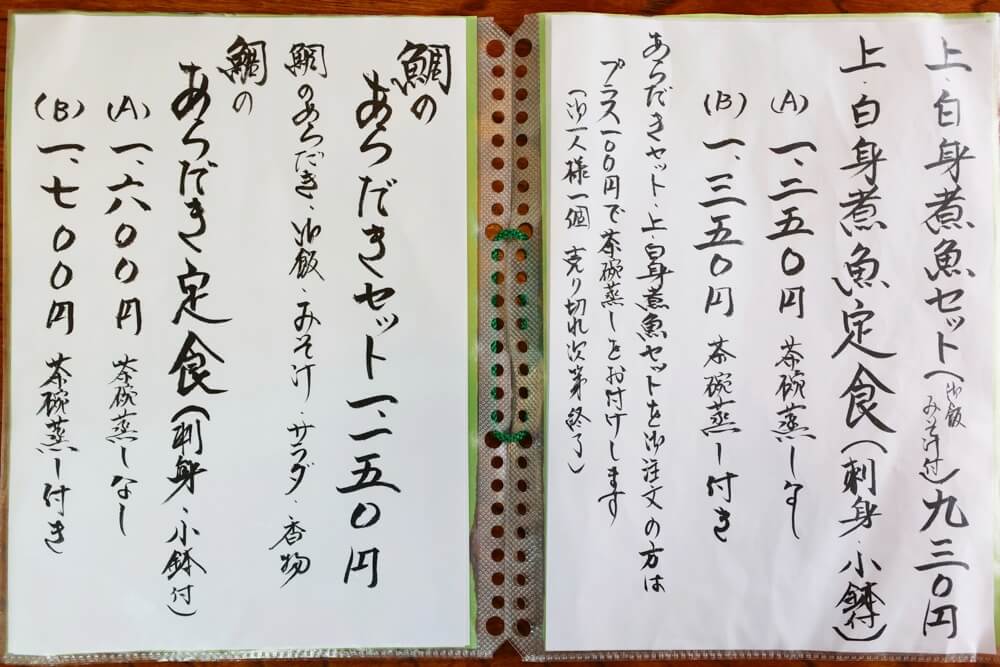 上・白身煮魚セット(御飯みそ汁付)九三〇円
上・白身煮魚定食(刺身・小鉢付)
(A) 一、二五〇円 茶碗蒸しなし
(B) 一、三五〇円 茶碗蒸し付き
あらだきセット・上・白身煮魚セットを御注文の方は
プラス一〇〇円で茶碗蒸しをお付けします
(御一人様一個 売り切れ次第終了)
鯛の
あらだきセット 一、一五〇円
鯛のあらだき・御飯・みそ汁・サラダ・香物
鯛の
あらだき定食(刺身・小鉢付)
(A) 一、六〇〇円 茶碗蒸しなし
(B) 一、七〇〇円 茶碗蒸し付き